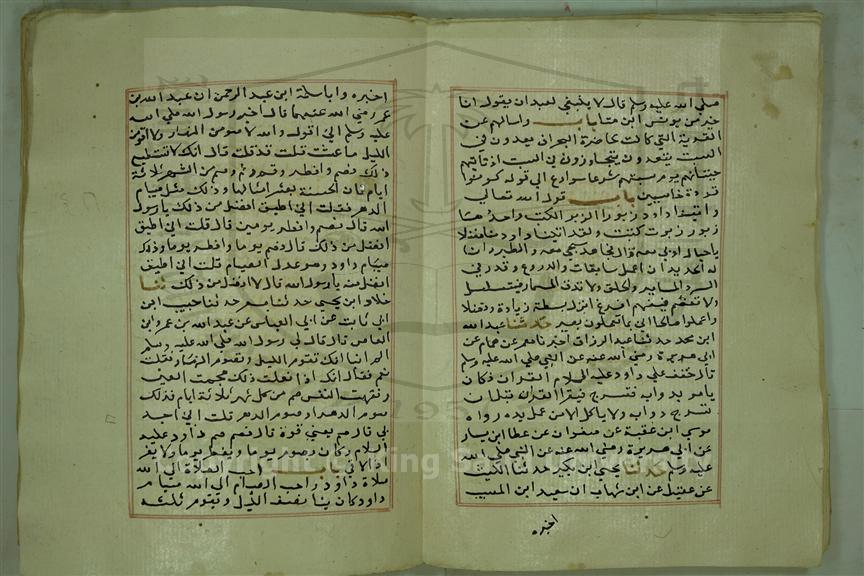 صلي الله عليه وسلم قال لا ينبغي لعبد ان يقول انا
خير من يونس ابن متا باب واسالهم عن
القرية التي كانت حاضرة البحر ان يعدون في
السبت يتعدون يتجاوزون في السبت اذ تاتيهم
حيتانهم يوم سبتهم شرعا شوارع الي قوله كونوا
قردة خاسيين باب قول الله تعالي
واتينا داود زبورا الزبر الكتب واحدها
زبور زبرت كتبت ولقد اتينا داود منا فضلا
يا جبال اوبي معه قال مجاهد سبحي معه والطير والنا
له الحديد ان اعمل سابغات والدروع وقدر في
السرد المسامير والحلق ولا تدق المسمار فيتسلسل
ولا تعظم فينفصم افرغ انزل بسطة زيادة وفضلا
واعملوا صالحا اني بما تعملون بصير حدثنا عبد الله
ابن محمد حدثنا عبد الرزاق اخبرنا معمر عن همام عن
ابي هريرة رضي الله عنه عن النبي صلي الله عليه وسلم
قال خفف علي داود عليه السلام القران فكان
يامر بدوابه فتسرج فيقرا القران قبل ان
تسرج دوابه ولا ياكل الا من عمل يده رواه
موسي ابن عقبة عن صفوان عن عطا ابن يسار
عن ابي هريرة رضي الله عنه عن النبي صلي الله
عليه وسلم حدثنا يحيي ابن بكير حدثنا الليث
عن عقيل عن ابن شهاب ان سعيد ابن المسيب
اخبره
اخبره وابا سلمة ابن عبد الرحمن ان عبد الله بن
عمر رضي الله عنهما قال اخبر رسول الله صلي الله
عليه وسلم اني اقول والله لاصومن النهار ولاقومن
الليل ما عشت قلت قد قلته قال انك لا تستطيع
ذلك فصم وافطر وقم ونم وصم من الشهر ثلاثة
ايام فان الحسنة بعشر امثالها وذلك مثل صيام
الدهر فقلت اني اطيق افضل من ذلك يا رسول
الله قال فصم وافطر يومين قال قلت اني اطيق
افضل من ذلك قال فصم يوما وافطر يوما وذلك
صيام داود وهو عدل الصيام قلت اني اطيق
افضل منه يا رسول الله قال لا افضل من ذلك ثنا
خلاد ابن يحيي حدثنا مسعر حدثنا حبيب ابن
ابي ثابت عن ابي العباس عن عبد الله بن عمرو ابن
العاص قال قال لي رسول الله صلي الله عليه وسلم
الم انبا انك تقوم الليل وتصوم النهار فقلت
نعم فقال انك اذا فعلت ذلك هجمت العين
ونفهت النفس صم من كل شهر ثلاثة ايام فذلك
صوم الدهر او كصوم الدهر قلت اني اجد
بي قال مسعر يعني قوة قال فصم صوم داود عليه
السلام وكان يصوم يوما ويفطر يوما ولا يفر
اذا لاقي باب احب الصلاة الي الله
صلاة داود واحب الصيام الي الله صيام
داود كان ينام نصف الليل ويقوم ثلثه